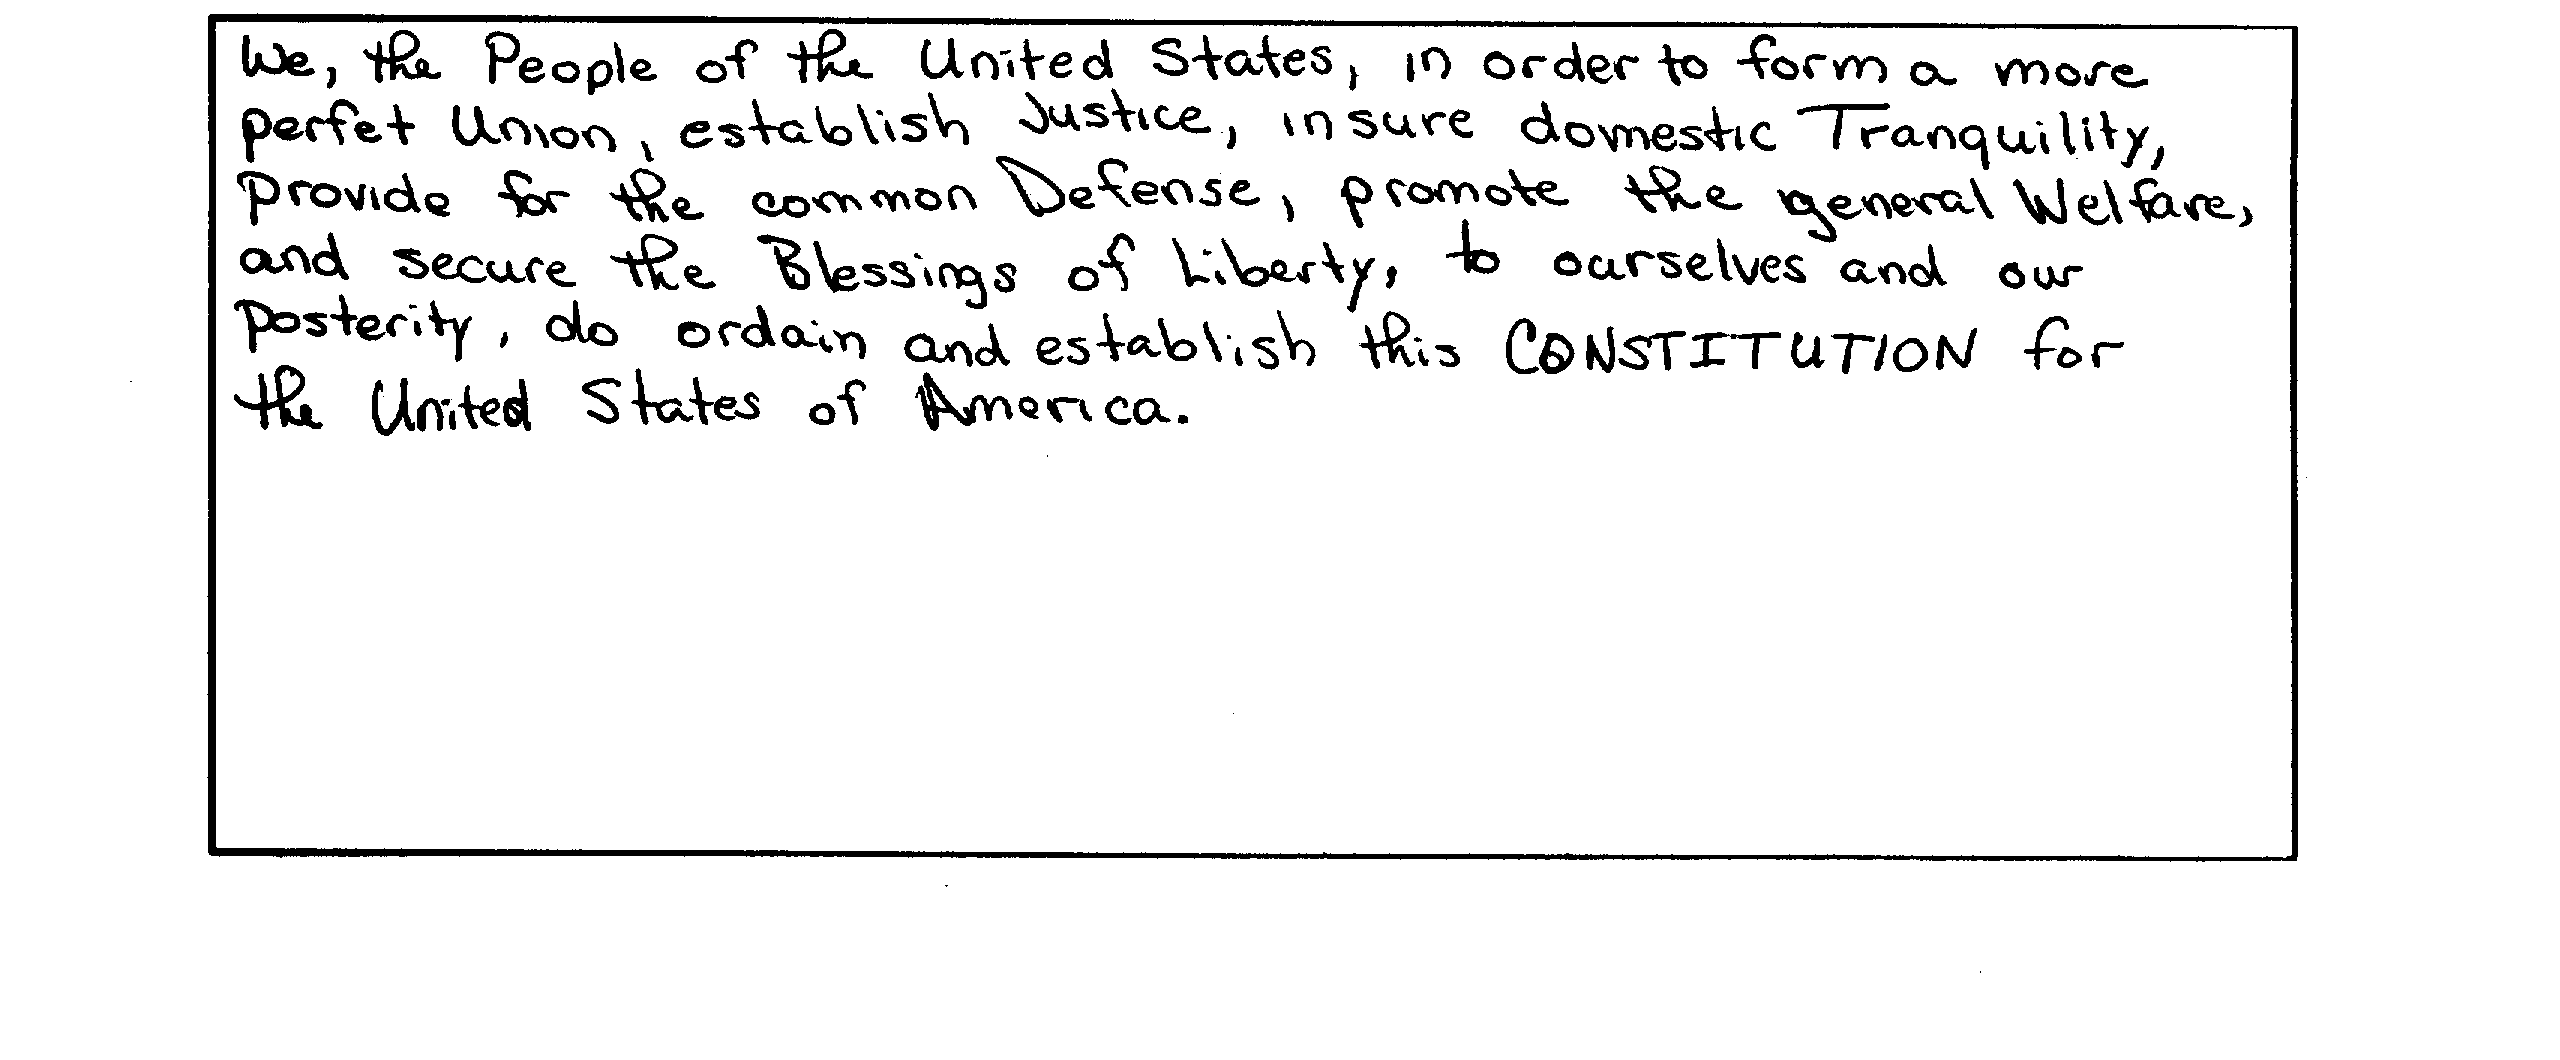 We, the People of the United States, in order to form a more
perfet Union, establish Justice, insure domestic Tranquility,
provide for the common Defense, promote the general Welfare,
and secure the Blessings of Liberty, to ourselves and our
Posterity, do ordain and establish this CONSTITUTION for
the United States of America.